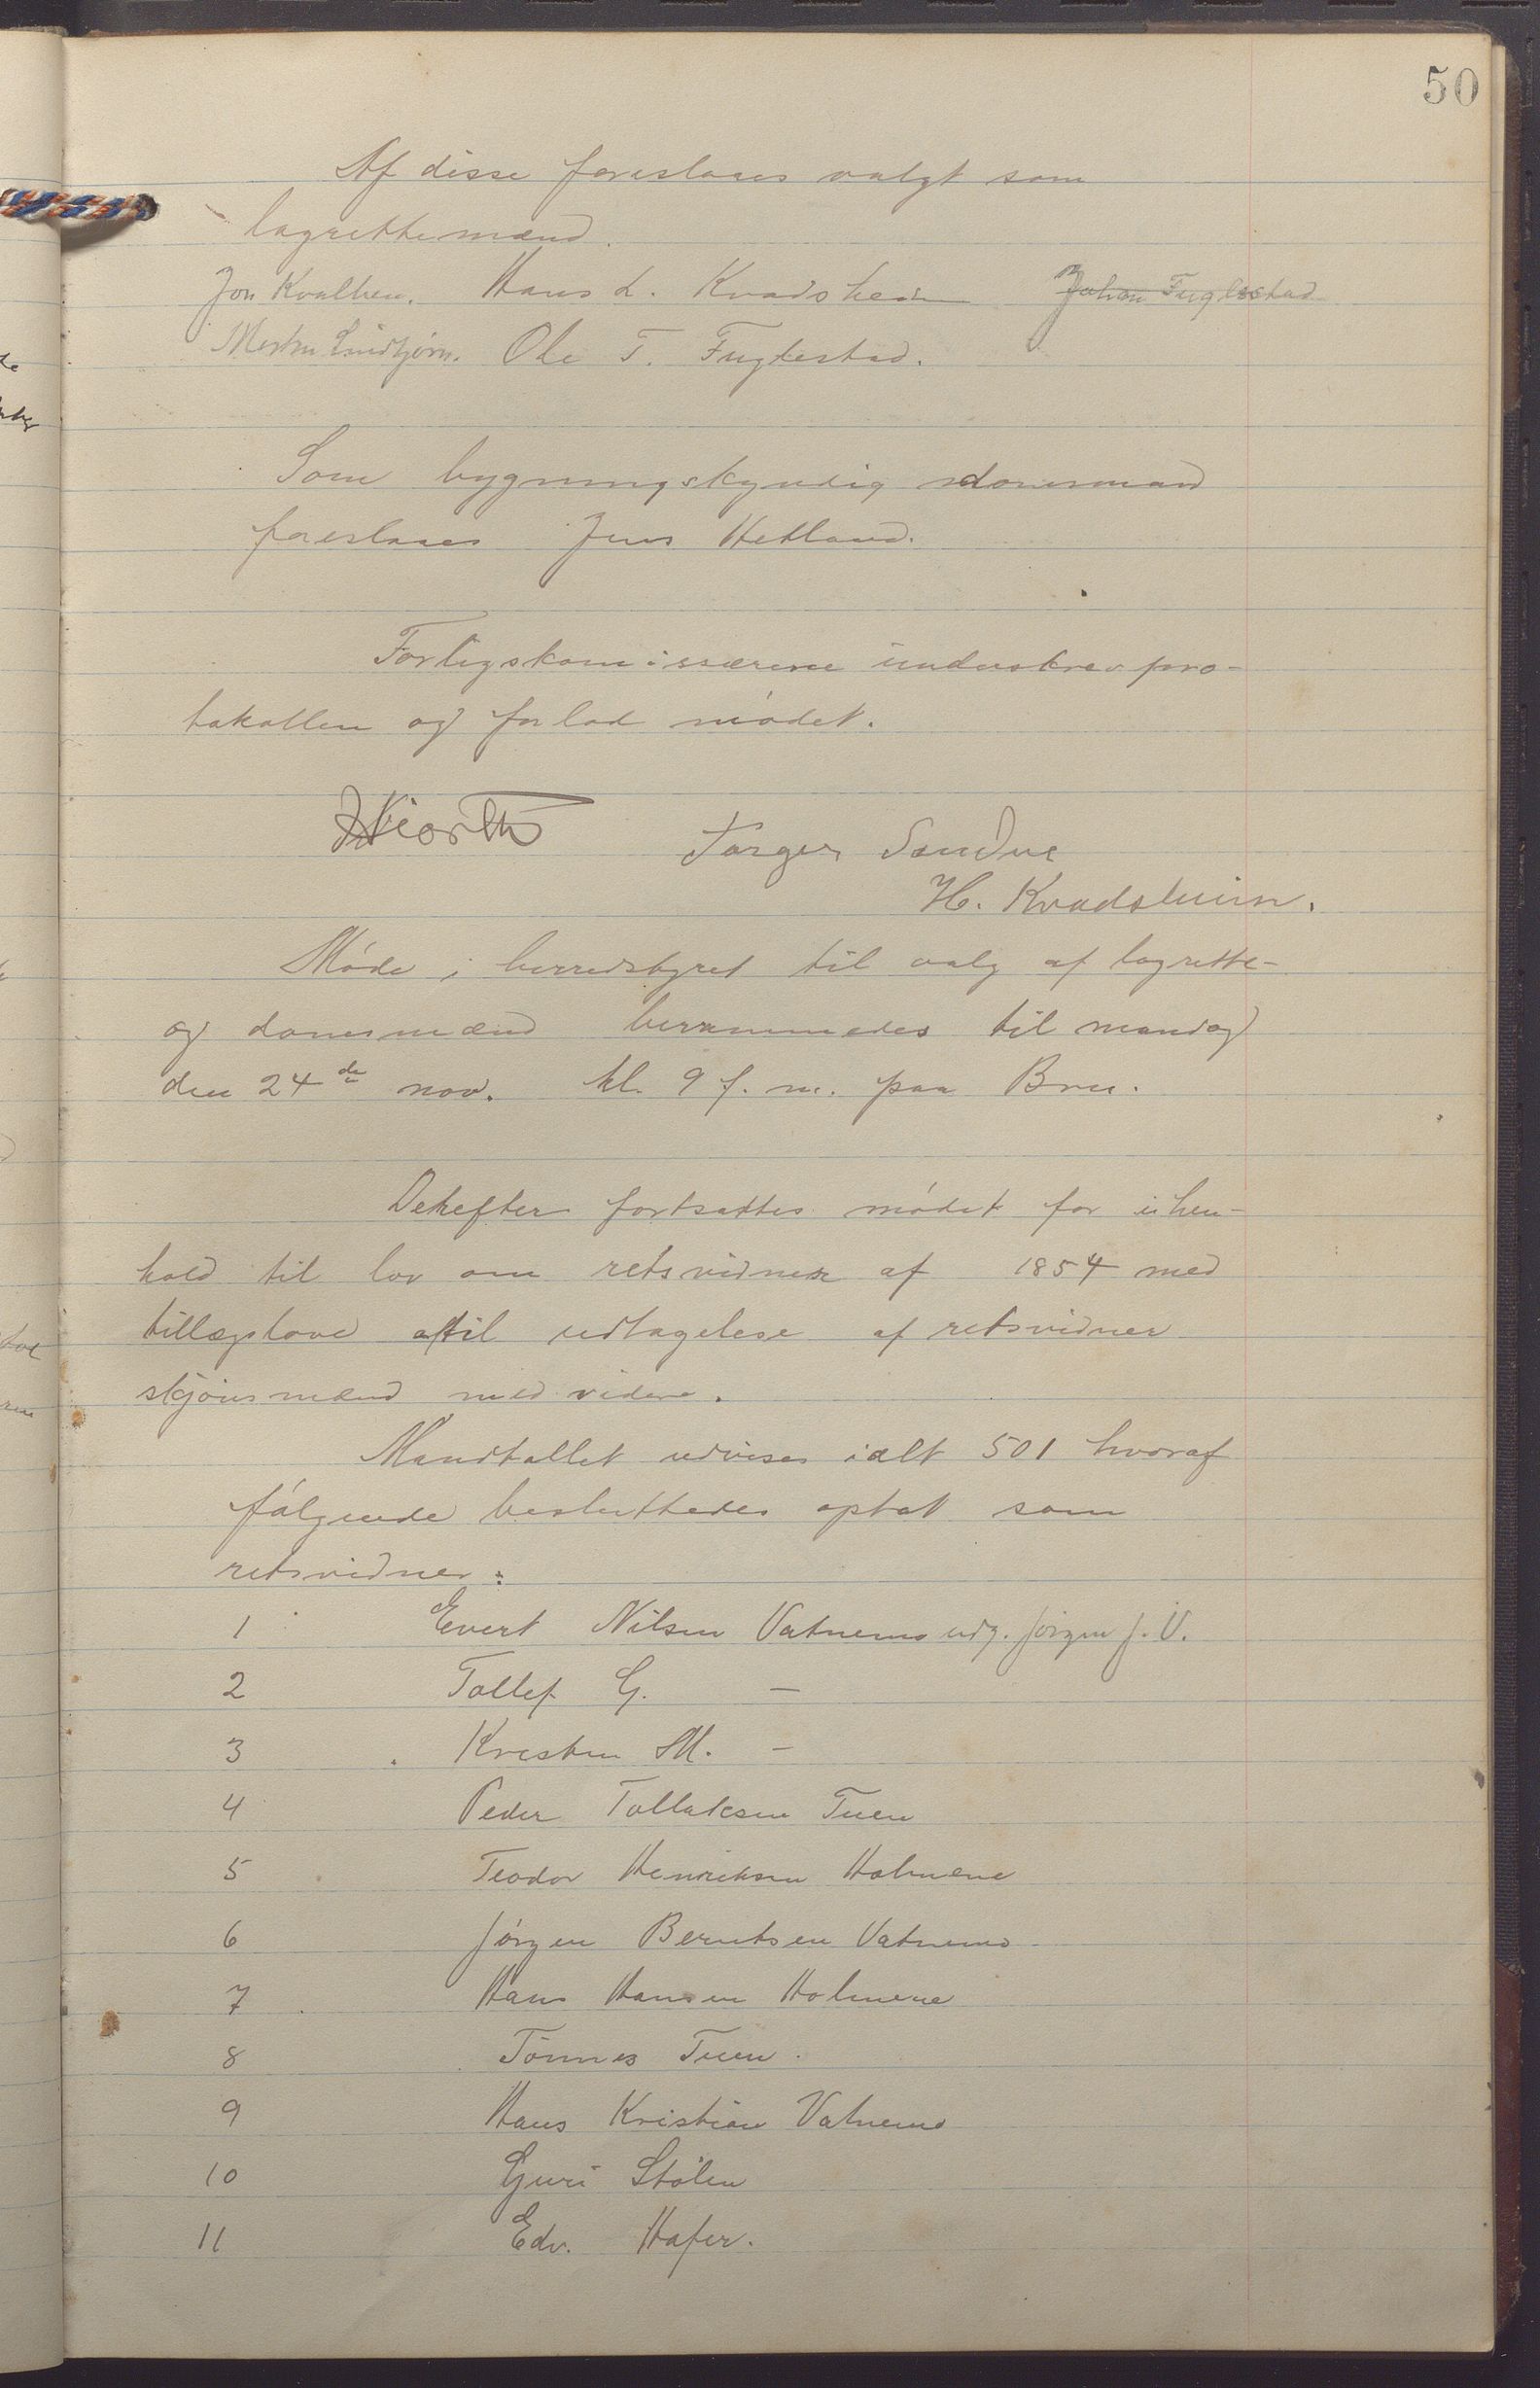 50
Af disse foreslaaes valgt som
lagrettemænd.
Jon Kvalhen. Hans L. Kvadsheim Johan Fuglestad
Ole T. Fuglestad.
Som bygningskyndig domsmand
foreslaaes Jens Hetland.
Forligskomissærene underskrev pro-
tokollen og forlod mødet.
Torger Sandve
H. Kvadsheim.
Møde i herredstyret til valg af lagrette-
og domsmænd berammedes til mandag
den 24de nov. kl. 9 f. m. paa Bru.
Derefter fortsattes mødet for i hen-
hold til lov om retsvidner af 1854 med
tillægslove til udtagelse af retsvidner
skjønsmænd med videre.
Mandtallet udviser ialt 501 hvoraf
følgende besluttedes optat som
retsvidner:
1 Evert Nilsen Vatnemo udg. Jørgen J. V.
2 Tollef G. —
3 Kristen M. —
4 Peder Tollaksen Tuen
5 Teodor Henriksen Holmene
6 Jørgen Berntsen Vatnemo
7 Hans Hansen Holmene
8 Tønnes Tuen.
9 Hans Kristian Vatnemo
10 Guri Stølen
11 Edv. Hafer.